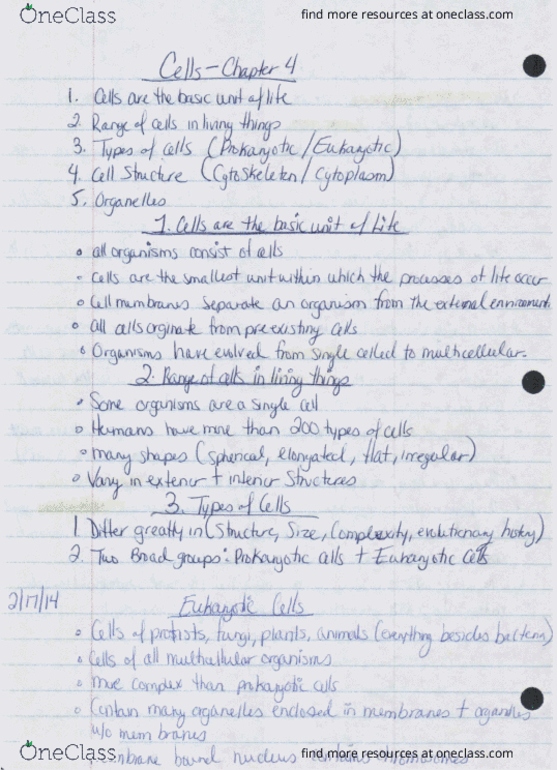 OneClass
find more resources at oneclass.com
Cells – Chapter 4
1. Cells are the basic unit of life
2. Range of cells in living things
3. Types of cells (Prokaryotic / Eukaryotic)
4. Cell Structure (Cytoskeleton / Cytoplasm)
5. Organelles
1. Cells are the basic unit of Life
all organisms consist of cells
cells are the smallest unit within which the processes of life occur
Cell membranes separate an organism from the external environment
all cells orginate from preexisting cells
Organisms have evolved from single celled to multicellular.
2. Range of cells in living things
Some organisms are a single cell
Humans have more than 200 types of cells
many shapes (spherical, elongated, flat, irregular)
Vary in exterior + interior Structures
3. Types of Cells
1. Differ greatly in (Structure, Size, Complexity, evolutionary history)
2. Two Broad groups: Prokaryotic cells + Eukaryotic Cells
2/17/14
Eukaryotic Cells
Cells of protists, fungi, plants, animals (everything besides bacteria)
Cells of all multicellular organisms
more complex than prokaryotic cells
Contain many organelles enclosed in membranes + organelles
w/o membranes
bound nucleus
OneClass
find more resources at oneclass.com